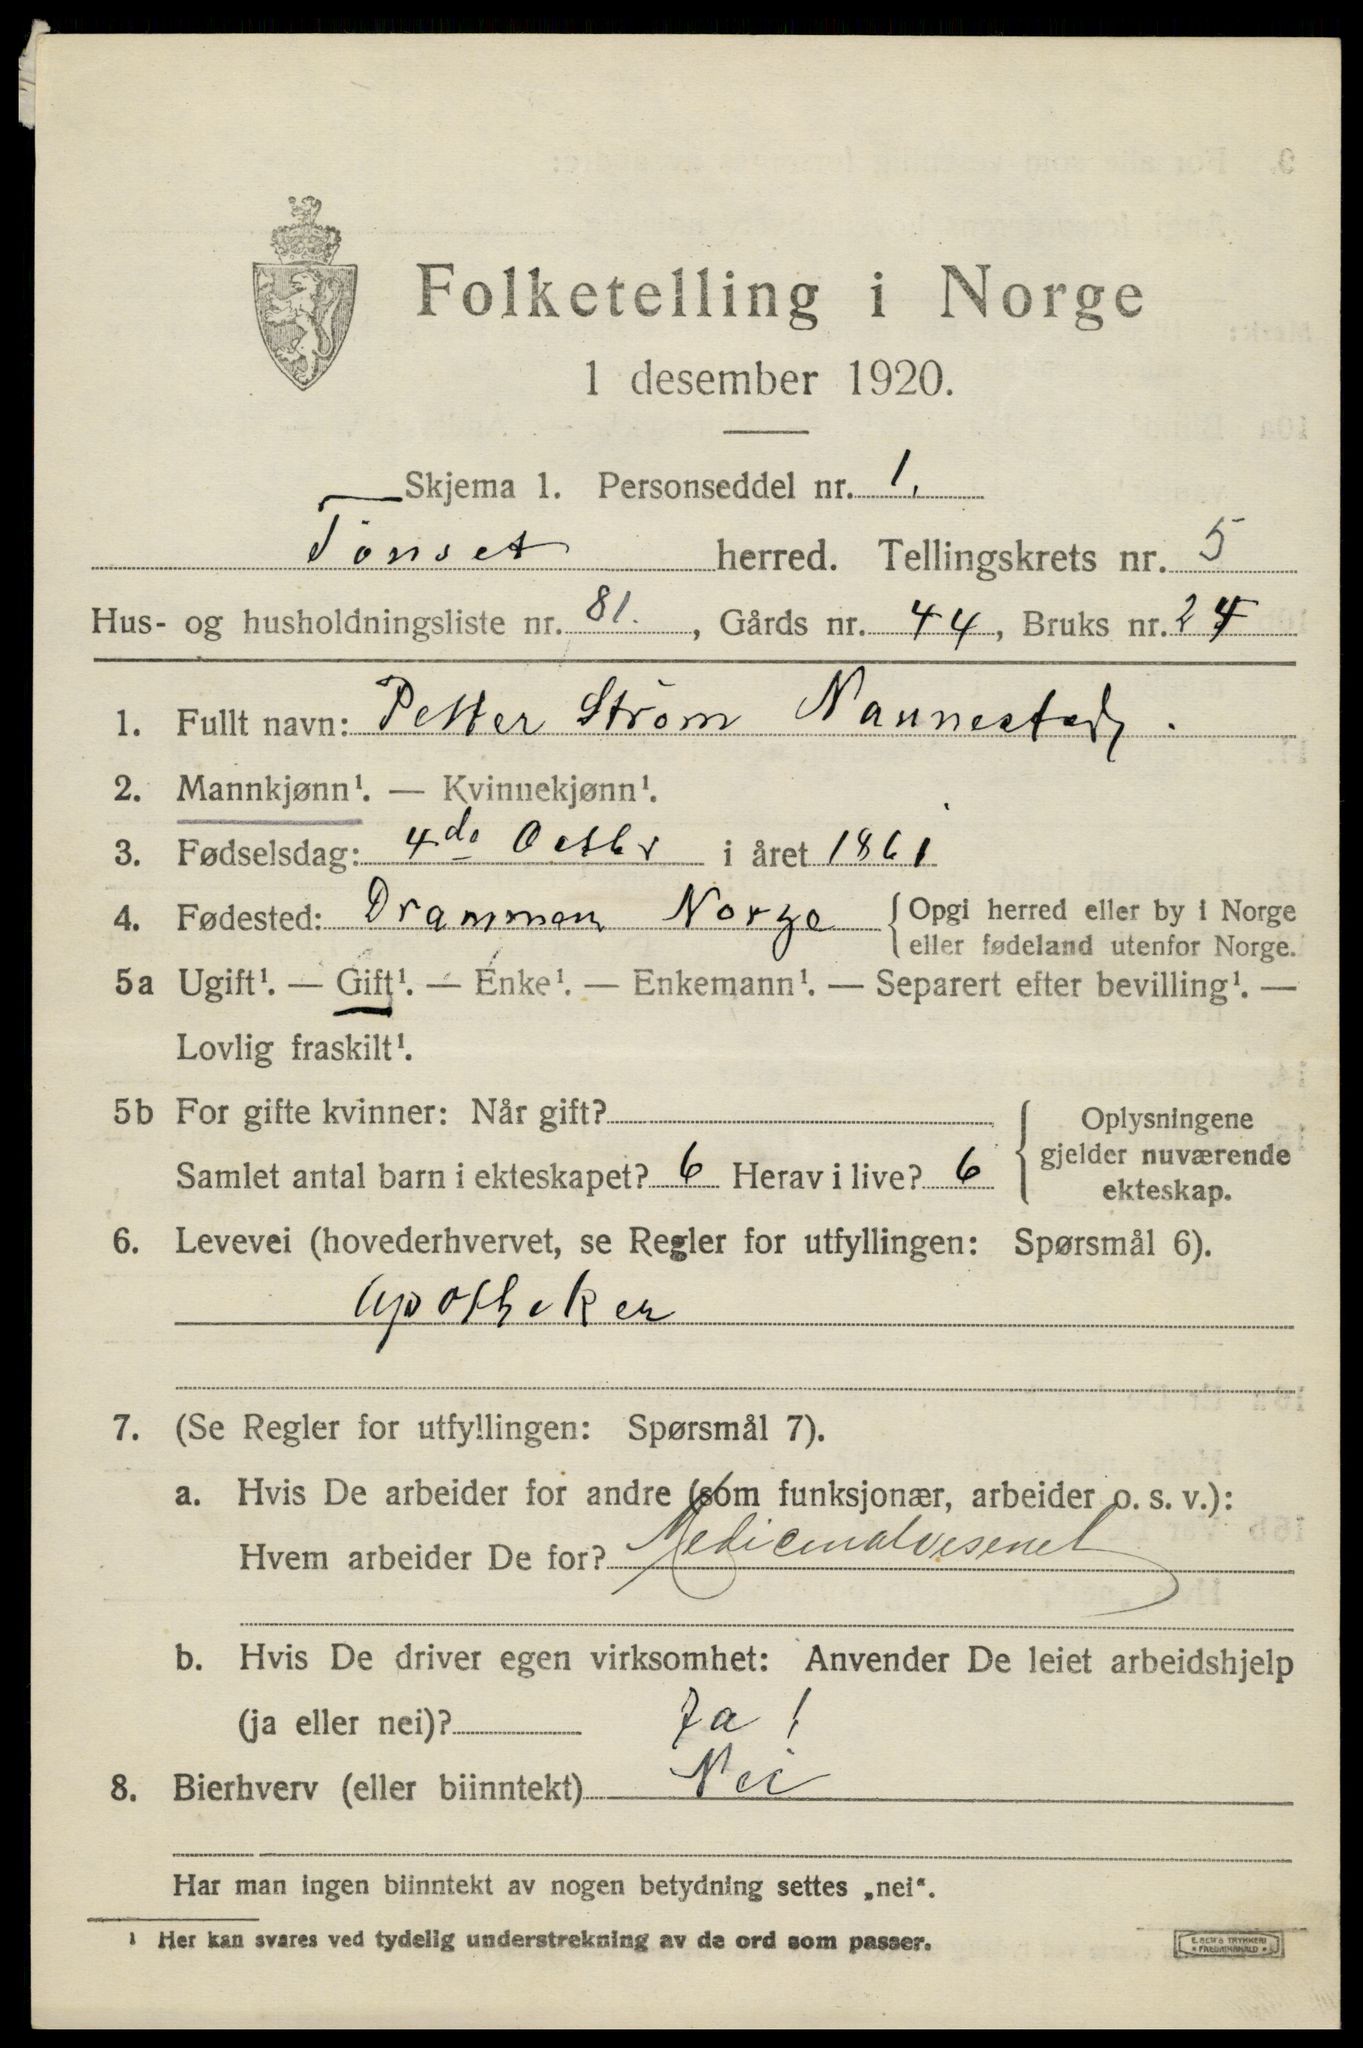 Folketelling i Norge
1 desember 1920.
Skjema 1. Personseddel nr. 1.
Tönset herred. Tellingskrets nr. 5
Hus- og husholdningsliste nr. 81., Gårds nr. 44, Bruks nr. 24
1. Fullt navn: Petter Ström Nannestad.
2. Mannkjønn¹. — Kvinnekjønn¹.
3. Fødselsdag: 4de Octbr i året 1861
4. Fødested: Drammen Norge {Opgi herred eller by i Norge
eller fødeland utenfor Norge.
5a Ugift¹. — Gift¹. — Enke¹. — Enkemann¹. — Separert efter bevilling¹. —
Lovlig fraskilt¹.
5b For gifte kvinner: Når gift?
Samlet antal barn i ekteskapet? 6 Herav i live? 6
Oplysningene
gjelder nuværende
ekteskap.
6. Levevei (hovederhvervet, se Regler for utfyllingen: Spørsmål 6).
Apotheker
7. (Se Regler for utfyllingen: Spørsmål 7).
a. Hvis De arbeider for andre (som funksjonær, arbeider o. s. v.):
Hvem arbeider De for? Medicinalvesenet
b. Hvis De driver egen virksomhet: Anvender De leiet arbeidshjelp
(ja eller nei)? Ja!
8. Bierhverv (eller biinntekt) Nei
Har man ingen biinntekt av nogen betydning settes „nei“.
¹ Her kan svares ved tydelig understrekning av de ord som passer.
E. SEM'S TRYKKERI
FREDRIKSHALD